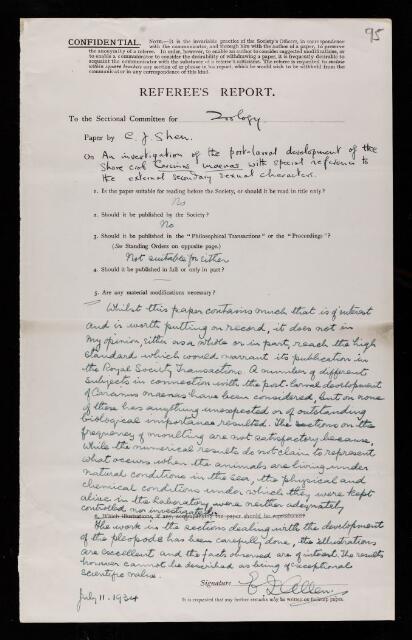 95
CONFIDENTIAL.
NOTE.—It is the invariable practice of the Society's Officers, in correspondence
with the communicator, and through him with the author of a paper, to preserve
the anonymity of a referee. In order, however, to enable an author to consider suggested modifications, or
to enable a communicator to consider the desirability of withdrawing a paper, it is frequently desirable to
acquaint the communicator with the substance of a referee's criticisms. The referee is requested to enclose
within square brackets any section of or phrase in his report, which he would wish to be withheld from the
communicator in any correspondence of this kind.
REFEREE'S REPORT.
To the Sectional Committee for Zoology.
Paper by C. J. Shen.
On An investigation of the post-larval development of the
shore crab Carcinus maenas, with special reference to
the external secondary sexual characters.
1. Is the paper suitable for reading before the Society, or should it be read in title only?
No
2. Should it be published by the Society?
No
3. Should it be published in the "Philosophical Transactions" or the "Proceedings"?
(See Standing Orders on opposite page.)
Not suitable for either
4. Should it be published in full or only in part?
5. Are any material modifications necessary?
Whilst this paper contains much that is of interest
and is worth putting on record, it does not in
my opinion, either as a whole or in part, reach the high
standard which would warrant its publication in
the Royal Society Transactions. A number of different
subjects in connection with the post larval development
of Carcinus maenas have been considered, but on none
of these has anything unexpected or of outstanding
biological importance resulted. The sections on the
frequency of moulting are not satisfactory because,
while the numerical results do not claim to represent
what occurs when the animals are living under
natural conditions in the sea, the physical and
chemical conditions under which they were kept
alive in the laboratory were neither adequately
controlled nor investigated.
6. Which illustrations, if any, accompanying the paper should be reproduced?
The work in the sections dealing with the development
of the pleopods has been carefully done, the illustrations
are excellent and the facts observed are of interest. The results
however cannot be described as being of exceptional
scientific value.
Signature E. J. Allen
July 11. 1934
It is requested that any further remarks may be written on foolscap paper.